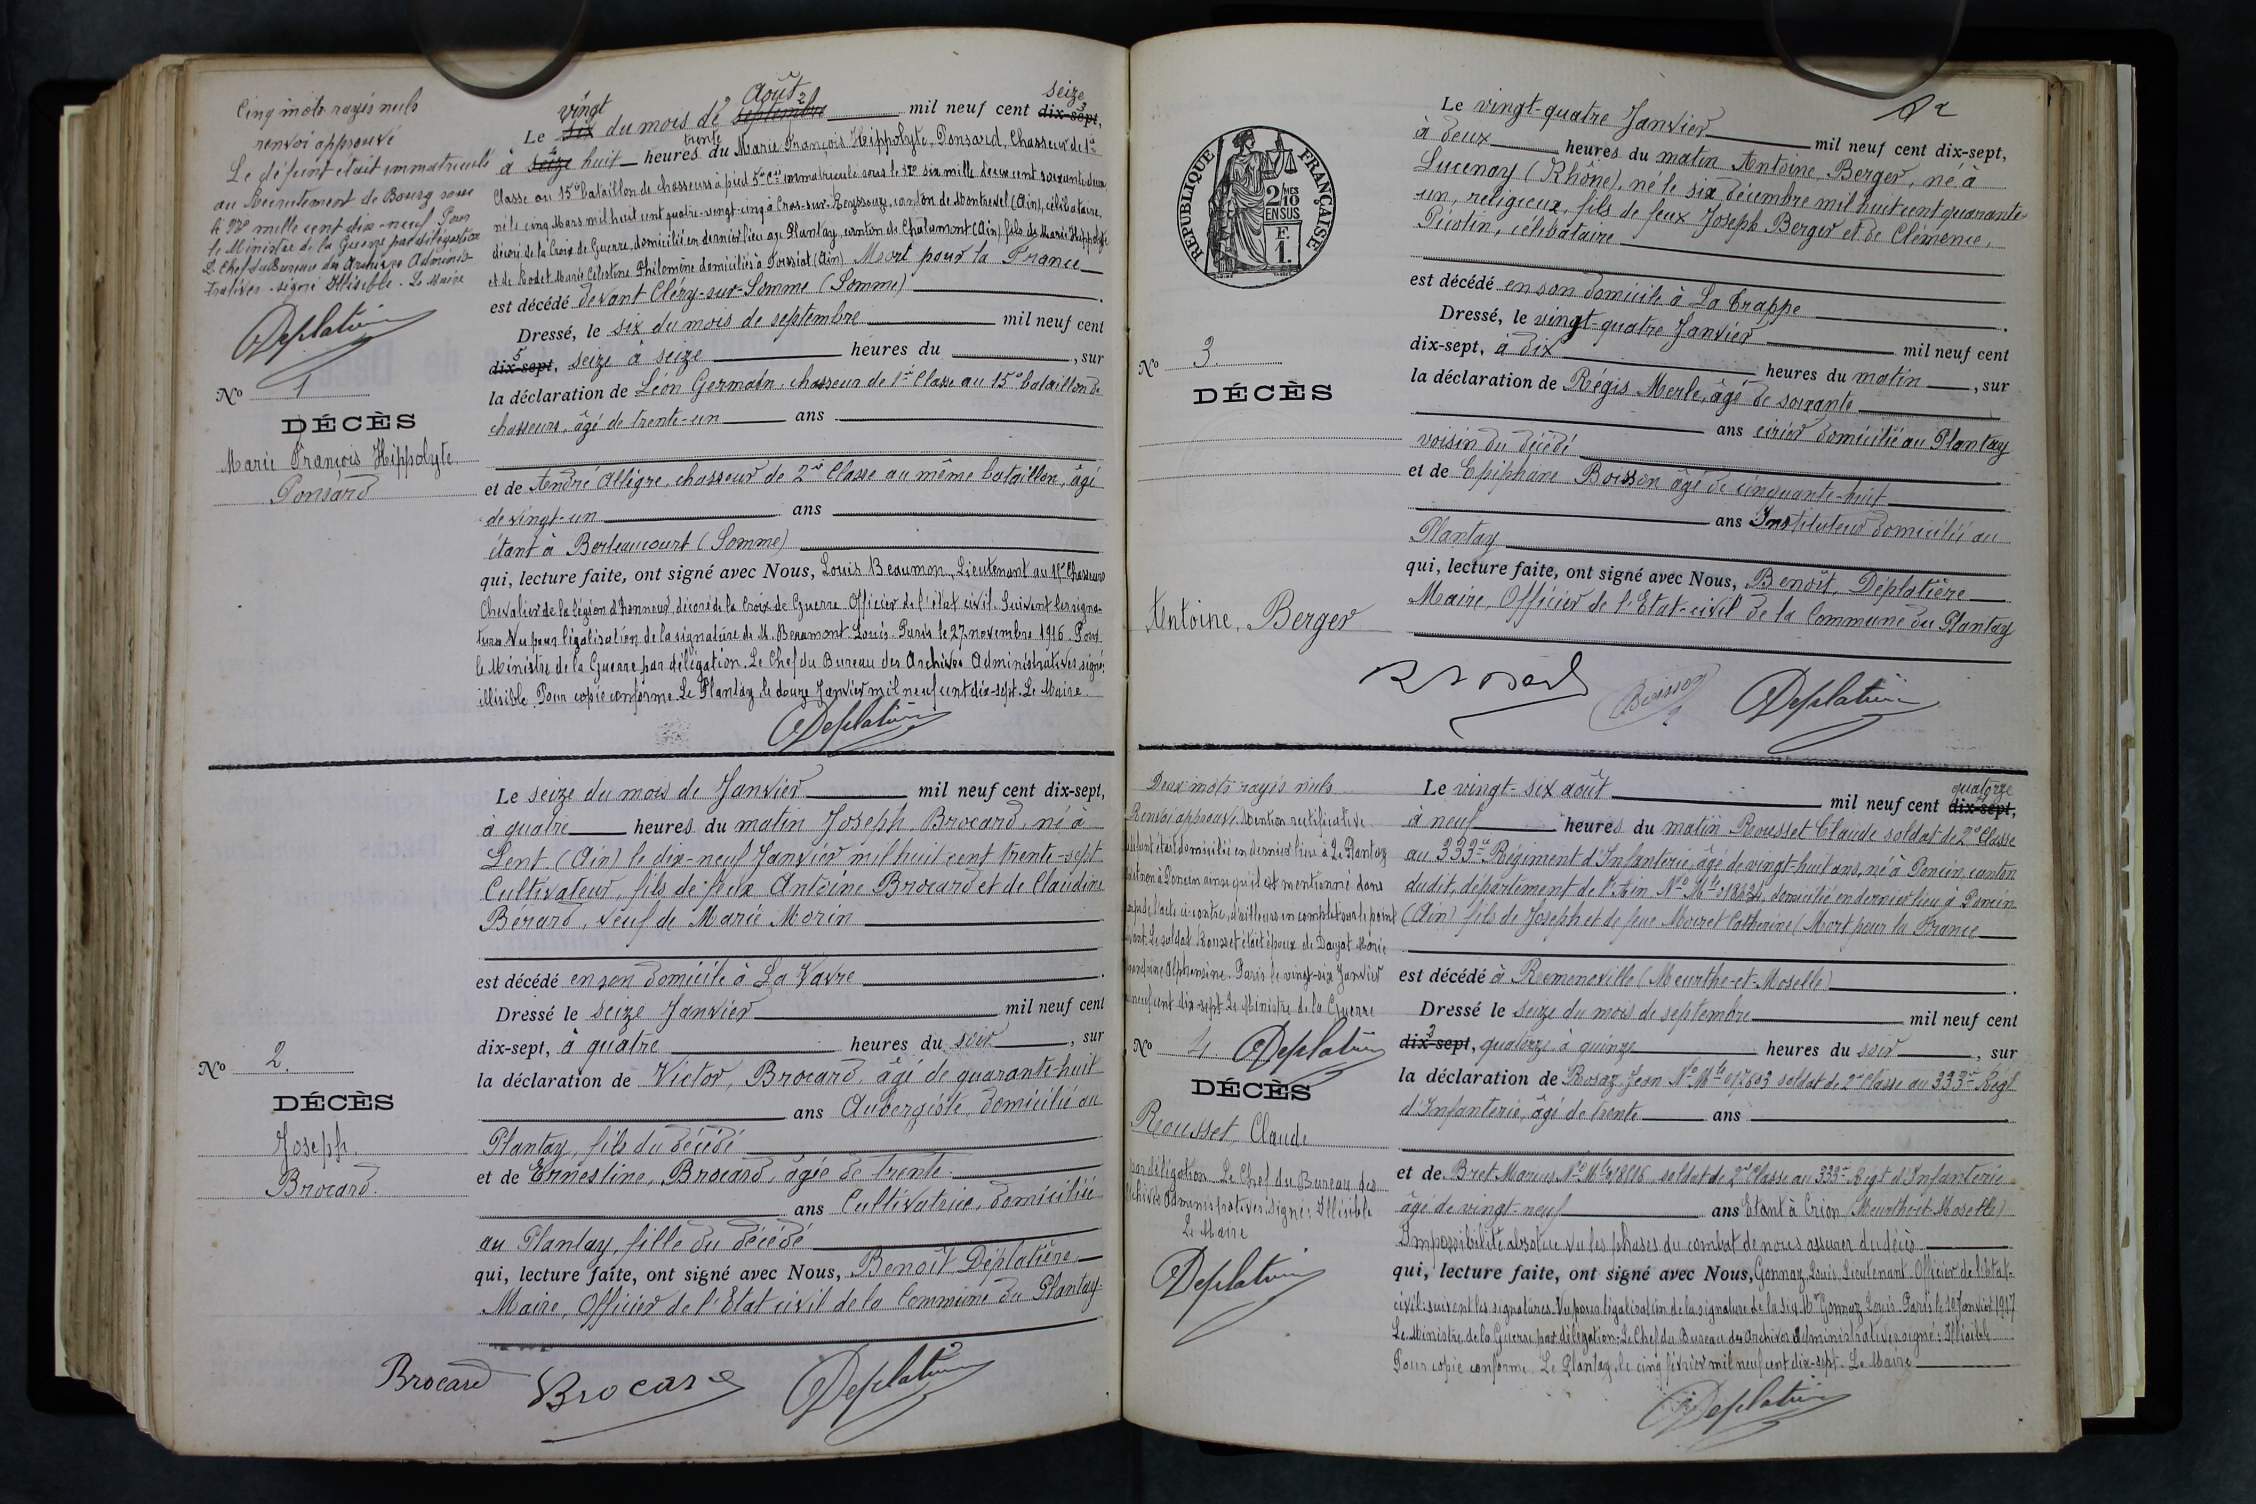 Cinq mots rayés nuls
renvoi approuvé
Le défunt était immatriculé
au Recrutement de Bourg sous
le No mille cent dix-neuf. Pour
le Ministre de la Guerre par délégation
Le Chef du Bureau des Archives Adminis-
tratives signé Illisible. Le Maire
Déplatière
No 1
DÉCÈS
Marie François Hippolyte
Ponsard
vingt août 2 seize 3
Le six du mois de septembre mil neuf cent dix-sept,
à seize huit heures trente du Marie François Hippolyte, Ponsard, Chasseur de 1re
Classe au 15e bataillon de chasseurs à pied 5e Cie immatriculé sous le No six mille deux cent soixante deux
né le cinq Mars mil huit cent quatre-vingt-cinq à Cras-sur-Reyssouze, canton de Montrevel (Ain), célibataire,
décoré de la Croix de Guerre, domicilié en dernier lieu au Plantay, canton de Chalamont (Ain) fils de Marie Hippolyte
et de Rodet Marie Célestine Philomène domiciliés à Foissiat (Ain) Mort pour la France
est décédé devant Cléry-sur-Somme (Somme).
Dressé, le six du mois de septembre mil neuf cent
5
dix-sept, seize à seize heures du , sur
la déclaration de Léon Germain, chasseur de 1re Classe au 15e bataillon de
chasseurs, âgé de trente-un ans
et de André Alligre, chasseur de 2e Classe au même bataillon, âgé
de vingt-un ans
étant à Berteaucourt (Somme)
qui, lecture faite, ont signé avec Nous, Louis Beaumon, Lieutenant au 15e Chasseurs
Chevalier de la légion d'honneur, décoré de la Croix de Guerre. Officier de l'état civil. Suivent les signa-
tures. Vu pour légalisation de la signature de M. Beaumont Louis. Paris le 27 novembre 1916. Pour
le Ministre de la Guerre par délégation. Le Chef du Bureau des Archives Administratives signé:
illisible. Pour copie conforme Le Plantay, le douze Janvier mil neuf cent dix-sept. Le Maire.
Déplatière
No 2.
DÉCÈS
Joseph.
Brocard.
Le seize du mois de Janvier mil neuf cent dix-sept,
à quatre heures du matin Joseph, Brocard, né à
Lent (Ain) le dix-neuf Janvier mil huit cent trente-sept
Cultivateur, fils de feux Antoine Brocard et de Claudine
Bérard, veuf de Marie Morin
est décédé en son domicile à La Vavre.
Dressé le seize Janvier mil neuf cent
dix-sept, à quatre heures du soir, sur
la déclaration de Victor, Brocard, âgé de quarante-huit
ans Aubergiste, domicilié au
Plantay, fils du décédé
et de Ernestine, Brocard, âgée de trente
ans Cultivatrice, domiciliée
au Plantay, fille du décédé
qui, lecture faite, ont signé avec Nous, Benoît Déplatière,
Maire, Officier de l'Etat civil de la Commune du Plantay
Brocard Brocard Déplatière
RÉPUBLIQUE FRANÇAISE
2/10 MES
EN SUS
F.
1.
No 3
DÉCÈS
Antoine, Berger
Le vingt-quatre Janvier mil neuf cent dix-sept,
à deux heures du matin Antoine, Berger, né à
Lucenay (Rhône), né le six décembre mil huit cent quarante-
un, religieux, fils de feux Joseph Berger et de Clémence,
Picotin, célibataire
est décédé en son domicile à La Trappe.
Dressé, le vingt-quatre Janvier mil neuf cent
dix-sept, à dix heures du matin, sur
la déclaration de Régis Merle, âgé de soixante
ans cirier domicilié au Plantay
voisin du décédé
et de Epiphane Boisson âgé de cinquante-huit
ans Instituteur domicilié au
Plantay
qui, lecture faite, ont signé avec Nous, Benoît, Déplatière
Maire, Officier de l'Etat-civil de la Commune du Plantay
Boisson Déplatière
Deux mots rayés nuls
Renvoi approuvé. Mention rectificative
était domicilié en dernier lieu à Le Plantay
non à Poncin ainsi qu'il est mentionné dans
l'acte ci-contre, d'ailleurs en complet sur le point
Le soldat Rousset était époux de Daujat Marie
Alphonsine. Paris le vingt-six Janvier
neuf cent dix-sept Le Ministre de la Guerre
No 4. Déplatière
DÉCÈS
Rousset, Claude
par délégation Le Chef du Bureau des
Archives Administratives. Signé: Illisible
Le Maire
Déplatière
quatorze
Le vingt-six août mil neuf cent dix-sept,
à neuf heures du matin Rousset Claude soldat de 2e Classe
au 333e Régiment d'Infanterie, âgé de vingt-huit ans, né à Poncin, canton
dudit, département de l'Ain No Mle 018634, domicilié en dernier lieu à Poncin
(Ain) fils de Joseph et de feue Mouret Catherine (Mort pour la France
est décédé à Remenoville (Meurthe-et-Moselle).
Dressé le seize du mois de septembre mil neuf cent
dix-sept, quatorze à quinze heures du soir, sur
la déclaration de Rosaz Jean No Mle 017603 soldat de 2e Classe au 333e Régt
d'Infanterie, âgé de trente ans
et de Bret Marius No Mle 018816 soldat de 2e Classe au 333e Régt d'Infanterie
âgé de vingt-neuf ans Etant à Crion (Meurthe-et-Moselle)
Impossibilité absolue vu les phases du combat de nous assurer du décès
qui, lecture faite, ont signé avec Nous, Gonnaz Louis Lieutenant Officier de l'Etat-
civil: suivent les signatures. Vu pour légalisation de la signature de Mr Gonnaz Louis. Paris le 10 Janvier 1917
Le Ministre de la Guerre par délégation: Le Chef du Bureau des Archives Administratives signé: Illisible
Pour copie conforme Le Plantay, le cinq février mil neuf cent dix-sept. Le Maire
Déplatière